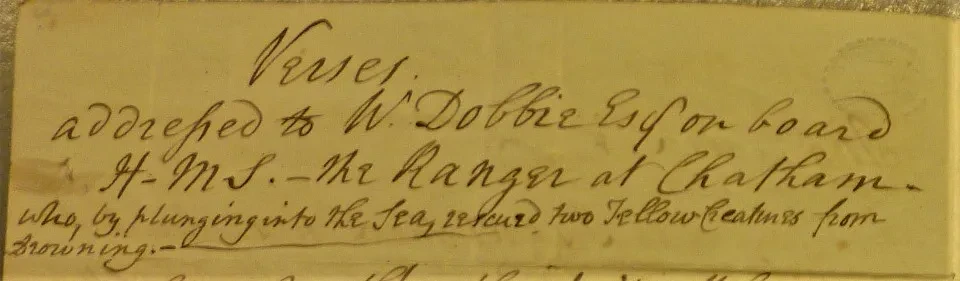 Verses.
addressed to W. Dobbie Esq on board
H-M S. - the Ranger at Chatham -
who, by plunging into the Sea, rescued two Fellow Creatures from
Drowning. -